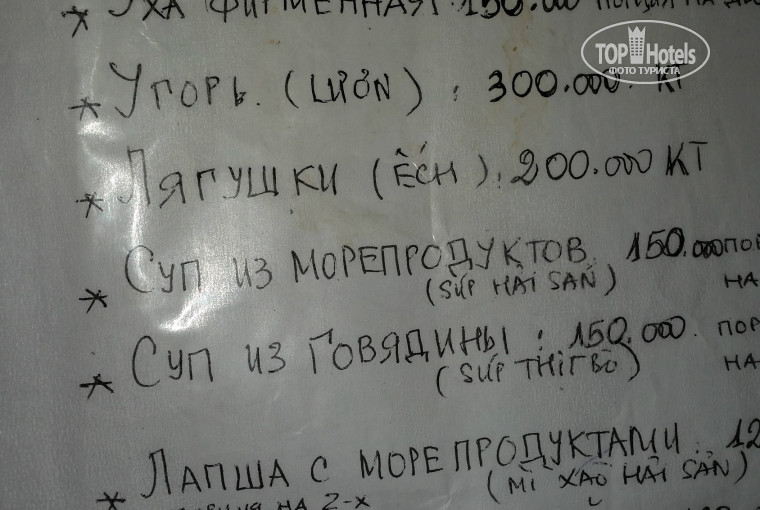 * УХА ФИРМЕННАЯ: 150.00
TOP Hotels
ФОТО ТУРИСТА
* УГОРЬ. (LƯƠN) : 300.000. КТ
* ЛЯГУШКИ (ẾCH) : 200.000 КТ
* СУП ИЗ МОРЕПРОДУКТОВ. 150.000 ПОР
(SÚP HẢI SẢN) НА
* СУП ИЗ ГОВЯДИНЫ : 150.000. ПОР
(SÚP THỊT BÒ) НА
* ЛАПША С МОРЕПРОДУКТАМИ : 12
(MÌ XÀO HẢI SẢN)
НА 2-Х